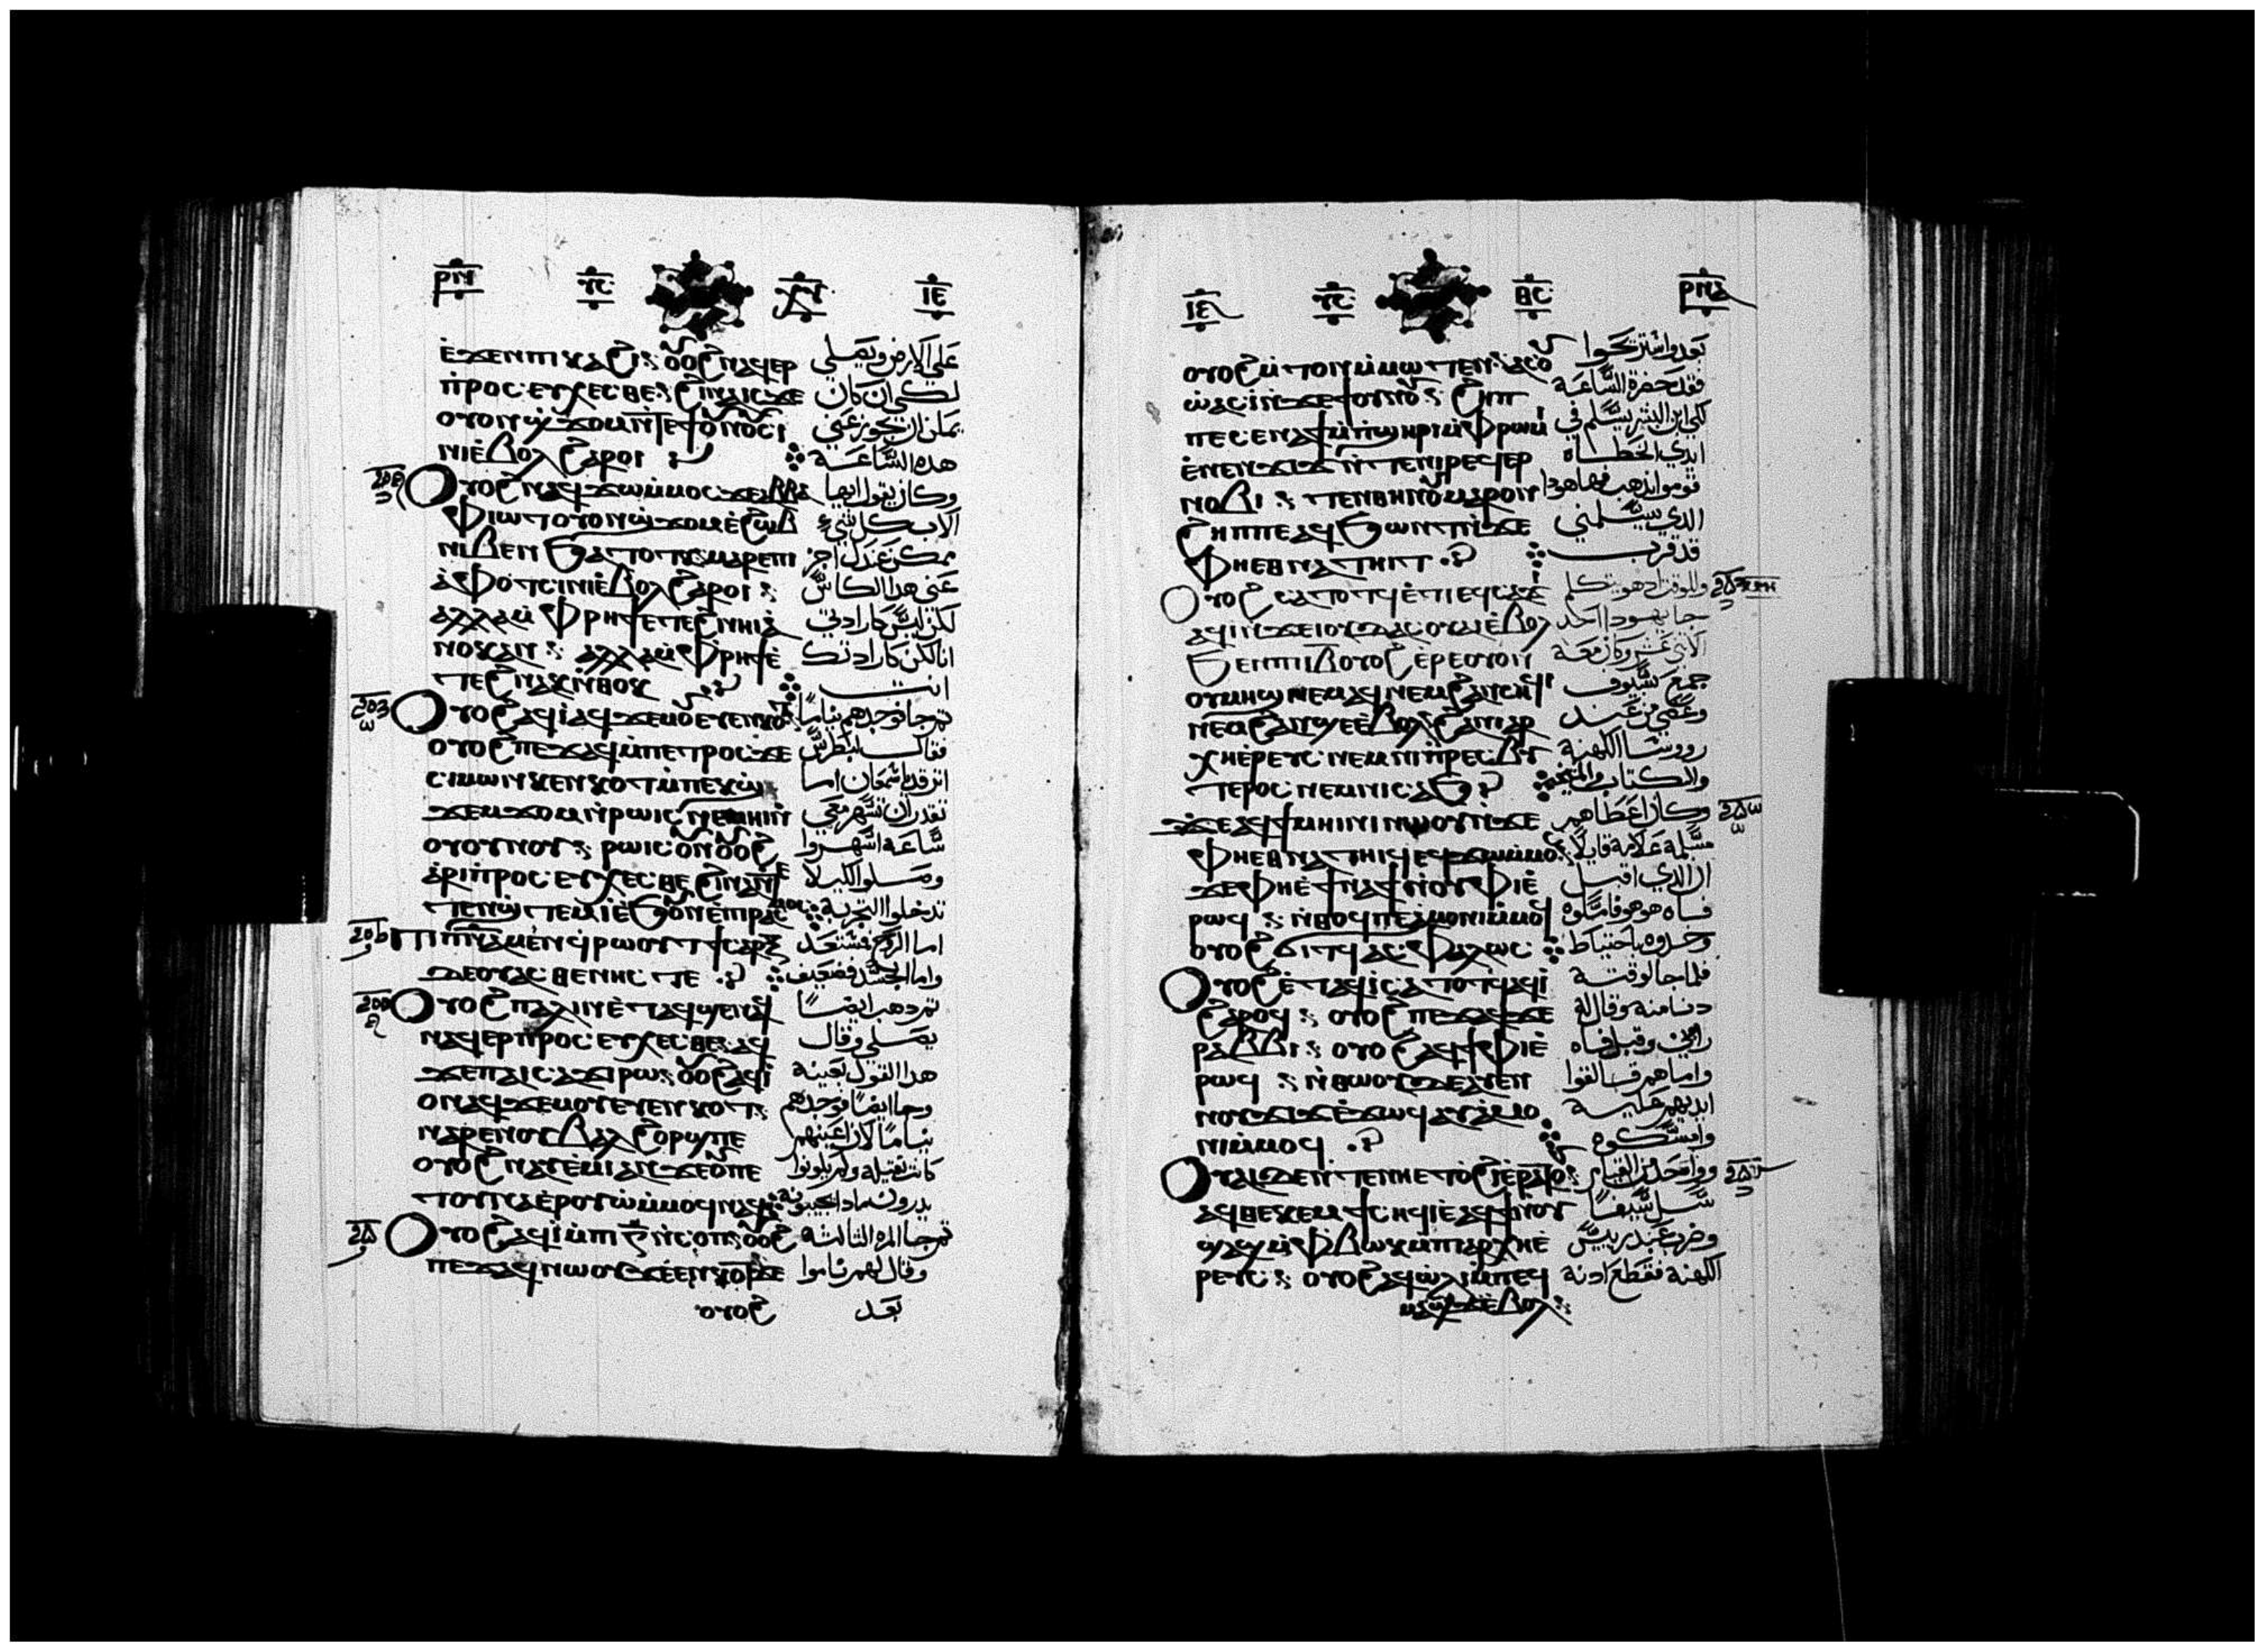 ⲣⲛ ⲩⲥ ⲓⲉ
ⲉϫⲉⲛⲡⲓⲕⲁϩⲓ ⲟⲩⲟϩ ⲛⲁϥⲉⲣ على الارض ويصلي
ⲡⲣⲟⲥⲉⲩⲭⲉⲥⲑⲉ ϩⲓⲛⲁ ⲓⲥϫⲉ لكي ان كان
ⲟⲩⲟⲛϣϫⲟⲙ ⲛⲧⲉϯⲟⲩⲛⲟⲩ ⲥⲓ يمكن ان تجوز عني
ⲛⲓⲉⲃⲟⲗϩⲁⲣⲟⲓ هده الساعة
ⲟⲩⲟϩ ⲛⲁϥϫⲱⲙⲙⲟⲥ ϫⲉⲁⲃⲃⲁ وكان يقول ايها
ⲫⲓⲱⲧ ⲟⲩⲟⲛϣϫⲟⲙ ⲉϩⲱⲃ الاب كل شيء
ⲛⲓⲃⲉⲛ ϧⲁⲧⲟⲧⲕ ⲙⲁⲣⲉⲡⲓ ممكن عندك اجز
ⲁⲫⲟⲧ ⲥⲓⲛⲓⲉⲃⲟⲗϩⲁⲣⲟⲓ عني هدا الكاس
ⲁⲗⲗⲁ ⲙⲫⲣⲏϯ ⲉⲧⲉϩⲛⲏⲓ ⲁ لكن ليس كارادتي
ⲛⲟⲕ ⲁⲛ ⲁⲗⲗⲁ ⲙⲫⲣⲏϯ ⲉ انا لكن كارادتك
ⲧⲉϩⲛⲁⲕ ⲛⲑⲟⲕ انت
ⲟⲩⲟϩ ⲁϥⲓ ⲁϥϫⲉⲙⲟⲩ ⲉⲩⲉⲛⲕⲟⲧ تم جا فوجدهم نياما
ⲟⲩⲟϩ ⲡⲉϫⲁϥ ⲙⲡⲉⲧⲣⲟⲥ ϫⲉ فقال لبطرس
ⲥⲓⲙⲱⲛ ⲕⲉⲛⲕⲟⲧ ⲙⲡⲉⲕϣ اترقد ياشمعان اما
ϫⲉⲙϫⲟⲙ ⲛⲣⲱⲓⲥ ⲛⲉⲙⲏⲓ ⲛ تقدر ان تسهر معي
ⲟⲩⲟⲩⲛⲟⲩ ⲣⲱⲓⲥ ⲟⲩⲛ ⲟⲩⲟϩ ساعة اسهروا
ⲁⲣⲓⲡⲣⲟⲥⲉⲩⲭⲉⲥⲑⲉ ϩⲓⲛⲁ ⲛ وصلوا لكيلا
ⲧⲉⲛϣⲧⲉⲙⲓ ⲉϧⲟⲩⲛ ⲉⲡⲓⲣⲁⲥⲙⲟⲥ تدخلوا التجربة
ⲡⲓⲡⲛⲁ ⲙⲉⲛ ϥⲣⲱⲟⲩⲧ ϯⲥⲁⲣⲝ اما الروح فمستعد
ⲇⲉ ⲟⲩⲁⲥⲑⲉⲛⲏⲥ ⲧⲉ واما الجسد فضعيف
ⲟⲩⲟϩ ⲡⲁⲗⲓⲛ ⲉⲧⲁϥϣⲉⲛⲁϥ تم دهب ايضا
ⲛⲁϥⲉⲣⲡⲣⲟⲥⲉⲩⲭⲉⲥⲑⲉ ⲁϥ يصلي وقال
ϫⲉⲡⲁⲓⲥⲁϫⲓ ⲣⲱ ⲟⲩⲟϩ ⲁϥⲓ هدا القول بعينه
ⲟⲛ ⲁϥϫⲉⲙⲟⲩ ⲉⲩⲉⲛⲕⲟⲧ وجا ايضا فوجدهم
ⲛⲁⲣⲉⲛⲟⲩⲃⲁⲗ ϩⲟⲣϣ ⲡⲉ نياما لان اعينهم
ⲟⲩⲟϩ ⲛⲁⲩⲉⲙⲓ ⲁⲛ ϫⲉⲟⲩ ⲡⲉ كانت تقيله ولم يكونوا
ⲧⲟⲩⲛⲁⲉⲣⲟⲩⲱ ⲙⲙⲟϥ ⲛⲁϥ يدرون بمادا يجيبونه
ⲟⲩⲟϩ ⲁϥⲓ ⲙⲡⲓⲅ̄ ⲛⲥⲟⲡ ⲟⲩⲟϩ تم جا المره التالتة
ⲡⲉϫⲁϥ ⲛⲱⲟⲩ ϫⲉⲉⲛⲕⲟⲧ ϫⲉ وقال لهم ناموا
ⲟⲩⲟϩ بعد
ⲓⲉ ⲩⲥ ⲑⲥ ⲣⲛⲁ
ⲟⲩⲟϩ ⲙⲧⲟⲛ ⲙⲙⲱⲧⲉⲛ ⲁⲥⲟ بعد واستريحوا
ⲩⲱ ⲁⲥⲓ ⲛϫⲉϯⲟⲩⲛⲟⲩ ϩⲏⲡ فقد حضرة الساعة
ⲡⲉ ⲥⲉⲛⲁϯ ⲙⲡϣⲏⲣⲓ ⲙⲫⲣⲱⲙⲓ لكي ابن البشر يسلم في
ⲉⲛⲉⲛϫⲓϫ ⲛⲧⲉⲛⲓⲣⲉϥⲉⲣ ايدي الخطاه
ⲛⲟⲃⲓ ⲧⲉⲛⲑⲏⲛⲟⲩ ⲙⲁⲣⲟⲛ قوموا ندهب فها هودا
ϩⲏⲡⲡⲉ ⲁϥϧⲱⲛⲧ ⲛϫⲉ الدي يسلمني
ⲫⲏⲉⲑⲛⲁⲧⲏⲓⲧ قد قرب
ⲟⲩⲟϩ ⲥⲁⲧⲟⲧϥ ⲉⲧⲓ ⲉϥⲥⲁϫⲓ وللوقت اد هو يتكلم
ⲁϥⲓ ⲛϫⲉⲓⲟⲩⲇⲁⲥ ⲟⲩⲁⲓ ⲉⲃⲟⲗ جا يهودا احد
ϧⲉⲛⲡⲓⲓⲃ ⲟⲩⲟϩ ⲉⲣⲉⲟⲩⲟⲛ الاتني عشر وكان معه
ⲟⲩⲙⲏϣ ⲛⲉⲙⲁϥ ⲛⲉⲙϩⲁⲛⲥⲏϥⲓ جمع بسيوف
ⲛⲉⲙϩⲁⲛϣⲉ ⲉⲃⲟⲗϩⲁⲛⲓⲁⲣ وعصي من عند
ⲭⲏⲉⲣⲉⲩⲥ ⲛⲉⲙⲛⲓⲡⲣⲉⲥⲃⲩ رووسا الكهنة
ⲧⲉⲣⲟⲥ ⲛⲉⲙⲛⲓⲥⲁϧ والكتاب والمشيخة
ⲛⲉⲁϥϯⲙⲏⲓⲛⲓ ⲛⲱⲟⲩ ⲛϫⲉ وكان اعطاهم
ⲫⲏⲉⲑⲛⲁⲧⲏⲓϥ ⲉϥϫⲱⲙⲙⲟⲥ مسلمه علامة قايلا
ϫⲉⲫⲏ ⲉϯⲛⲁϯ ⲛⲟⲩⲫⲓ ⲉ ان الدي اقبل
ⲣⲱϥ ⲛⲑⲟϥ ⲡⲉ ⲁⲙⲟⲛⲓ ⲙⲙⲟϥ فاه هو هو فامسكوه
ⲟⲩⲟϩ ϭⲓⲧϥ ⲁⲥⲫⲁⲗⲱⲥ وخدوه باحتياط
ⲟⲩⲟϩ ⲉⲧⲁϥⲓ ⲥⲁⲧⲟⲧϥ ⲁϥⲓ فلما جا لوقته
ϩⲁⲣⲟϥ ⲟⲩⲟϩ ⲡⲉϫⲁϥ ϫⲉ دنا منه وقال له
ⲣⲁⲃⲃⲓ ⲟⲩⲟϩ ⲁϥϯⲫⲓ ⲉ رابي وقبل فاه
ⲣⲱϥ ⲛⲑⲱⲟⲩ ⲇⲉ ⲁⲩⲉⲛ واما هم فالقوا
ⲛⲟⲩϫⲓϫ ⲉϫⲱϥ ⲁⲩⲁⲙⲟ ايديهم عليه
ⲛⲓ ⲙⲙⲟϥ وامسكوه
ⲟⲩⲁⲓ ⲇⲉ ⲛⲧⲉⲛⲏⲉⲧⲟϩⲓ ⲉⲣⲁⲧⲟⲩ وواحد من القيام
ⲁϥⲑⲉⲕⲉⲙ ϯⲥⲏϥⲓ ⲁϥϯ ⲛⲟⲩ سل سيفا
ϣⲁϣ ⲙⲫⲃⲱⲕ ⲙⲡⲓⲁⲣⲭⲏⲉ وضرب عبد رييس
ⲣⲉⲩⲥ ⲟⲩⲟϩ ⲁϥⲱⲗⲓ ⲙⲡⲉϥ الكهنة فقطع ادنه
ⲙⲁϣϫ ⲉⲃⲟⲗ